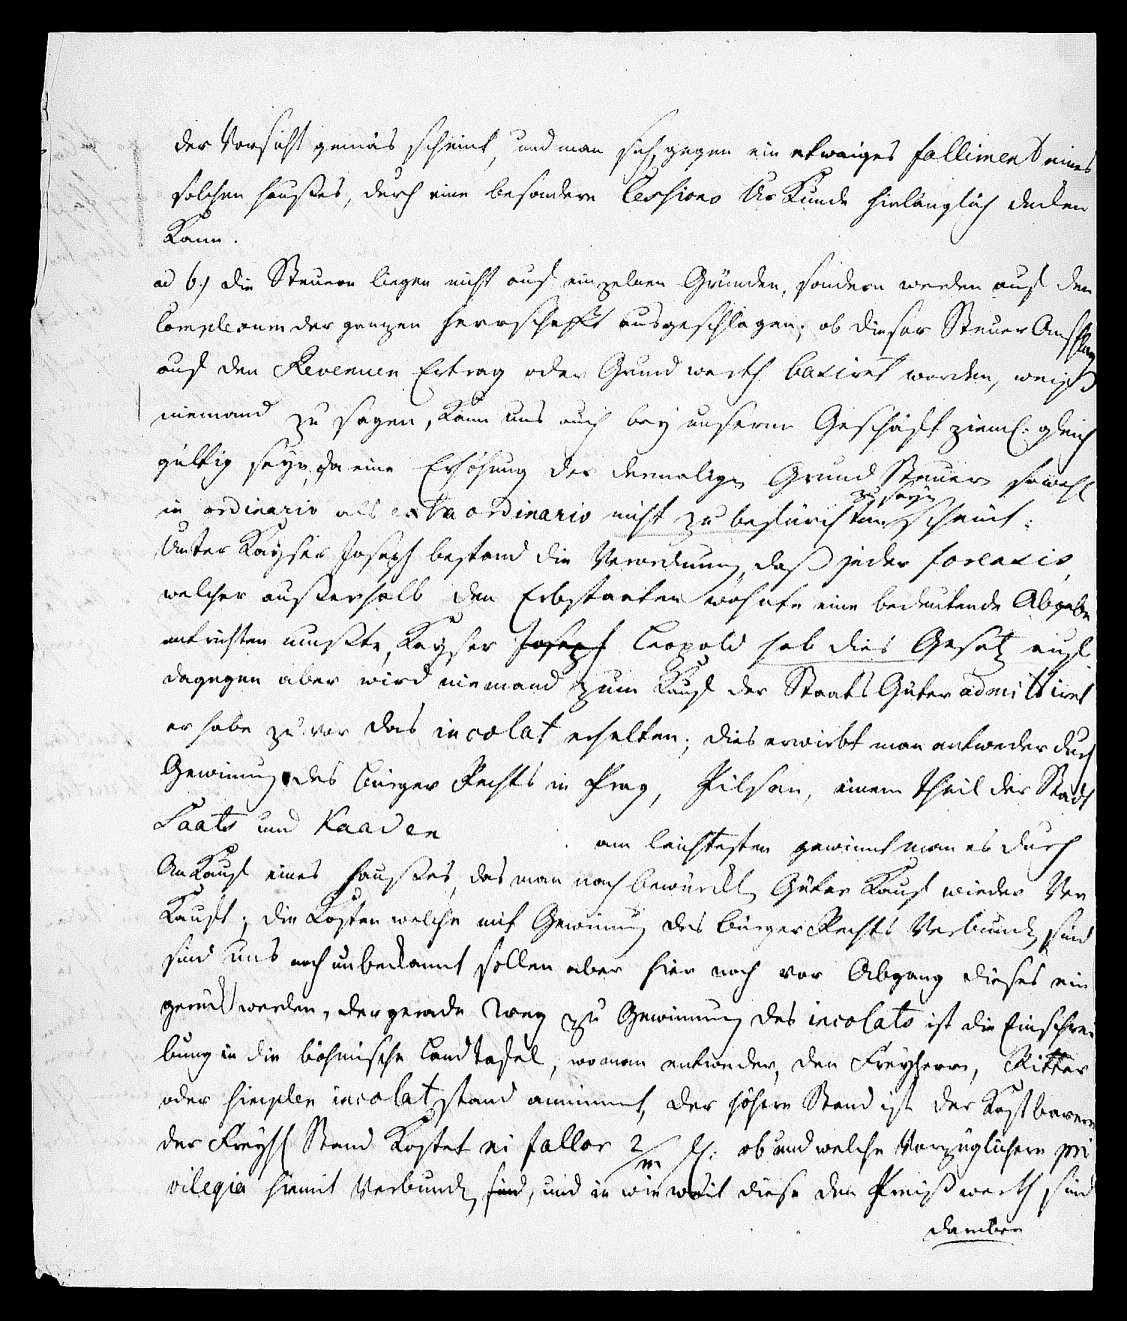 der Vorsicht gemäs scheint, und man sich gegen ein etwaiges falliment eines
solchen Haußes, durch eine besondere Cessions UrKunde hinlänglich decken
Kann.
ad 6.) die Steuern liegen nicht auf einzelnen Gründen, sondern werden auf den
Complexum der ganzen Herrschafft ausgeschlagen; ob dieser Steuer Anschlag
auf den Revenuen Ertrag oder Grund werth basiret worden, weiß
niemand zu sagen, Kann uns auch bey unserm Geschäft zieml: gleich
gültig seyn, da eine Erhöhung der dermaligen Grund Steuer sowohl
in ordinario als extraordinario nicht zu befürchten zu seyn scheint:
Unter Kayser Joseph bestand die Verordnung, daß jeder forensis,
welcher außerhalb den Erbstaaten wohnte eine bedeutende Abgabe
entrichten mußte, Kayser Joseph Leopold hob dies Gesetz auf.
dagegen aber wird niemand zum Kauf der Staats Güter admittiret
er habe zu vor das incolat erhalten; dies erwirbt man entweder durch
Gewinnung des Bürger Rechts in Prag, Pilsen, einem Theil der Stadt
Saatz und Kaaden am leichtesten gewinnt man es durch
AnKauf eines Haußes, das man nach bewürckt Güter Kauf wieder Ver
Kauft; die Kosten welche mit Gewinnung des Bürger Rechts Verbunden sind
sind uns noch unbekannt sollen aber hier noch vor Abgang dieses ein
gerückt werden, der gerade Weg zu Gewinnung des incolats ist die Einschrei
bung in die böhmische Landtafel, wo man entweder, den Freyherrn, Ritter
oder simplen incolat stand annimmt, der höhere Stand ist der Kostbarere
der Freyh Stand Kostet ni fallor 2/m fl: ob und welche Vorzüglichere pri
vilegia hiemit Verbunden sind, und in wie weit diese den Preiß werth sind
darüber